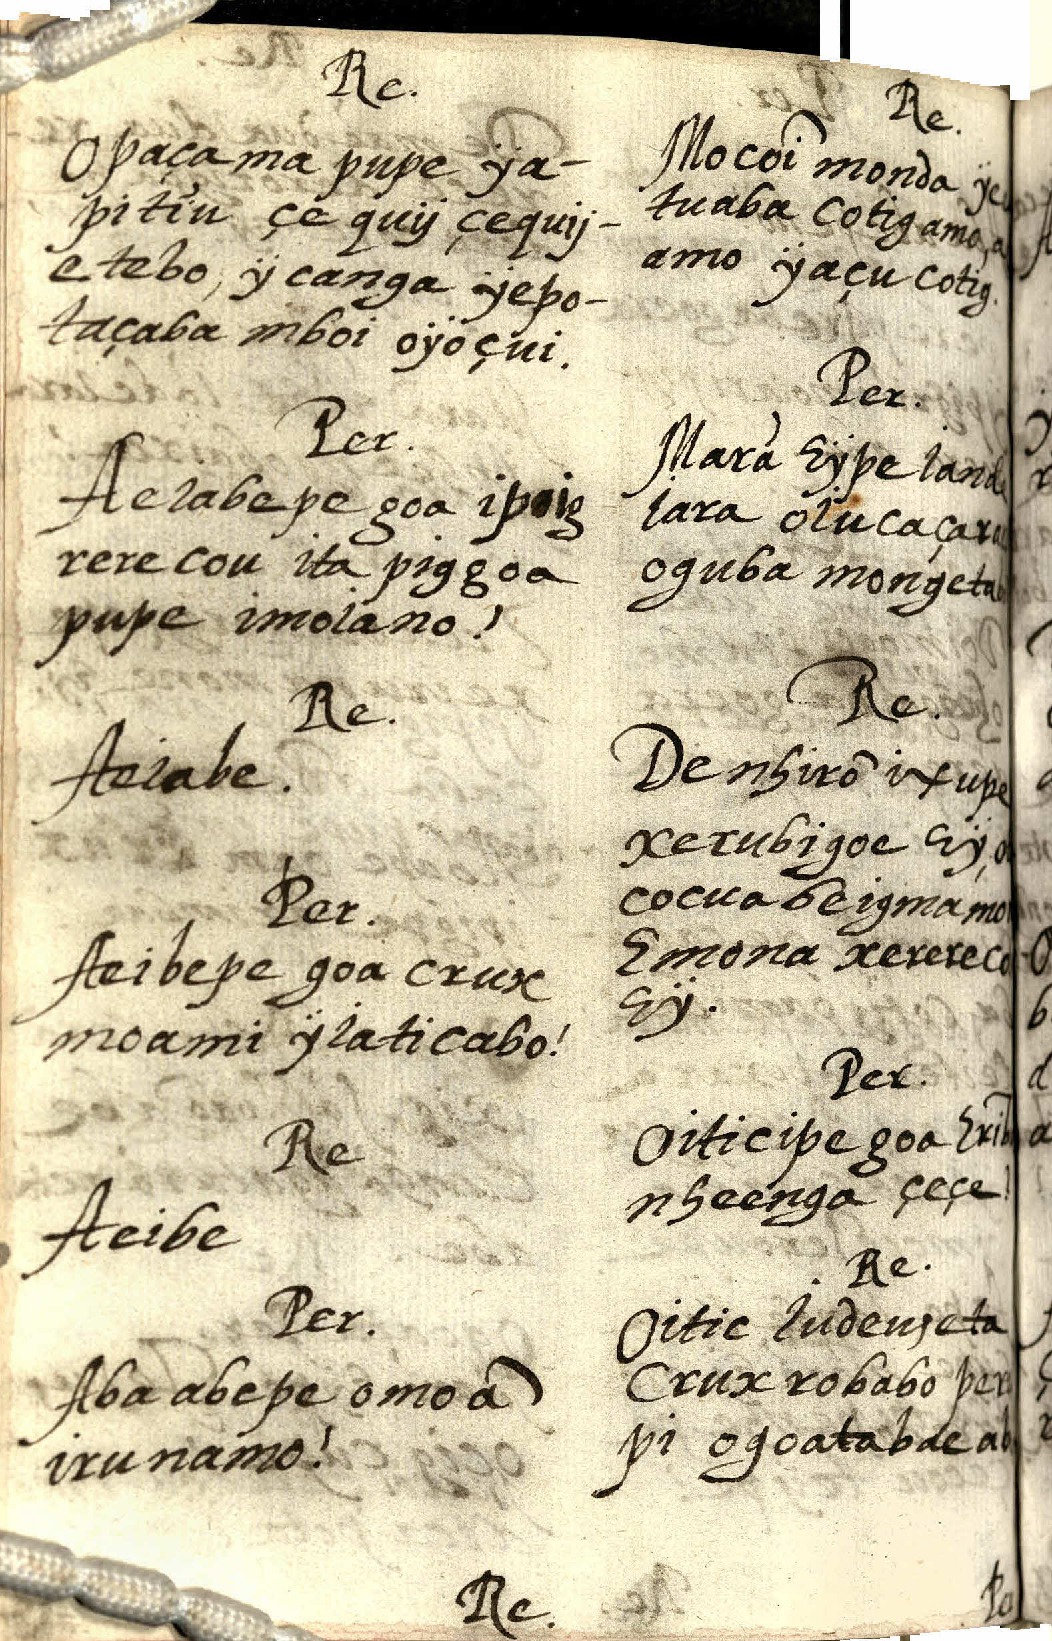 Re.
Opaçama pupe ÿa-
pitiu çe quij çequij-
etebo, ÿ canga ÿepo-
taçaba mboi oÿoçui.
Per.
Aeiabepe goa ipoig
rerecou ita piggoa
pupe imoiano!
Re.
Aeiabe.
Per.
Aeibepe goa crux
moami ÿiaticabo!
Re
Aeibe
Per.
Aba abepe omoã
irunamo!
Re.
Re.
Mocoî monda
tuaba cotigamo,
amo ÿaçu cotig.
Per.
Marã Eÿpe
Iara
oguba
Re.
De nhirõ ixupe
xerubigoe Eÿ,
cocuabeigmamo
Emona
Eÿ.
Per.
Oiticipe goa
nheenga çeçe!
Re.
Oitic Iudeuseta
Crux robabo
pi